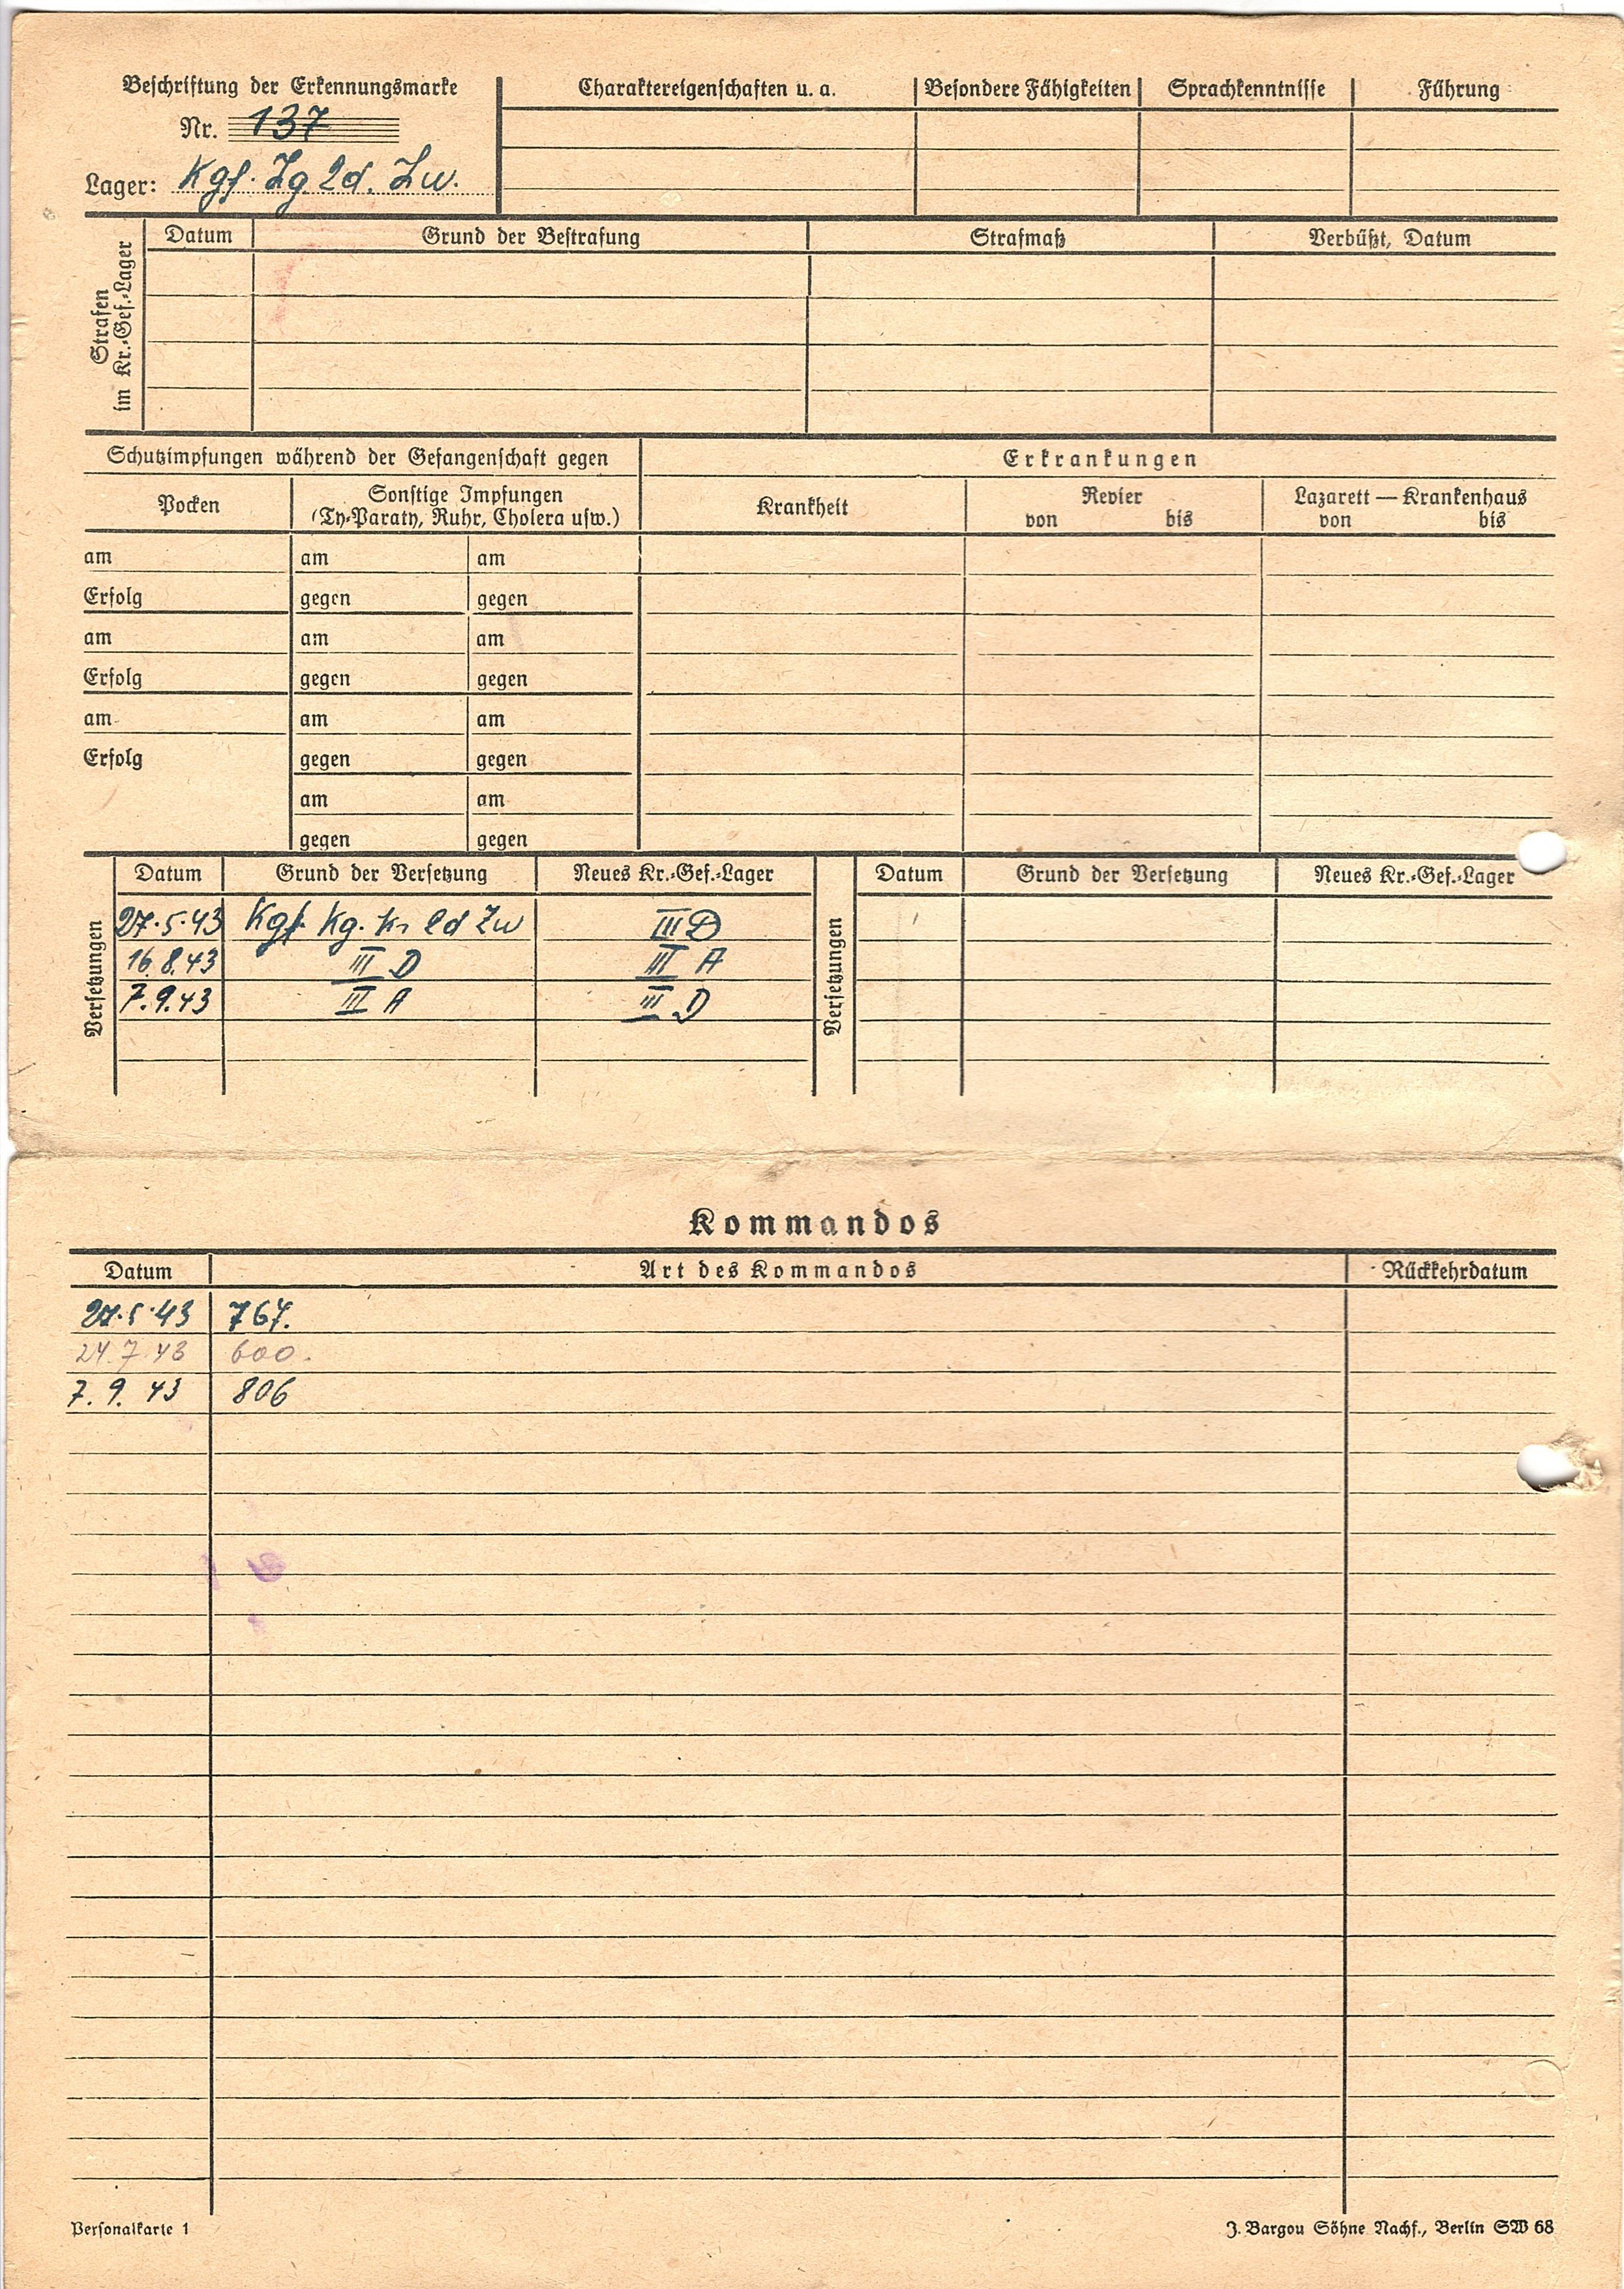 Beschriftung der Erkennungsmarke
Nr. 137
Lager: Kgf. Zg. Ld. Zw.
Charaktereigenschaften u. a. Besondere Fähigkeiten Sprachkenntnisse Führung
Strafen
im Kr.-Gef.-Lager
Datum Grund der Bestrafung Strafmaß Verbüßt, Datum
Schutzimpfungen während der Gefangenschaft gegen Erkrankungen
Pocken Sonstige Impfungen Krankheit Revier Lazarett — Krankenhaus
(Ty-Paraty, Ruhr, Cholera usw.) von bis von bis
am am am
Erfolg gegen gegen
am am am
Erfolg gegen gegen
am am am
Erfolg gegen gegen
am am
gegen gegen
Versetzungen
Datum Grund der Versetzung Neues Kr.-Gef.-Lager
27.5.43 Kgf. Kg. Ld Zw III D
16.8.43 III D III A
7.9.43 III A III D
Versetzungen
Datum Grund der Versetzung Neues Kr.-Gef.-Lager
Kommandos
Datum Art des Kommandos Rückkehrdatum
27.5.43 767.
24.7.43 600.
7.9.43 806
Personalkarte 1 J. Bargou Söhne Nachf., Berlin SW 68